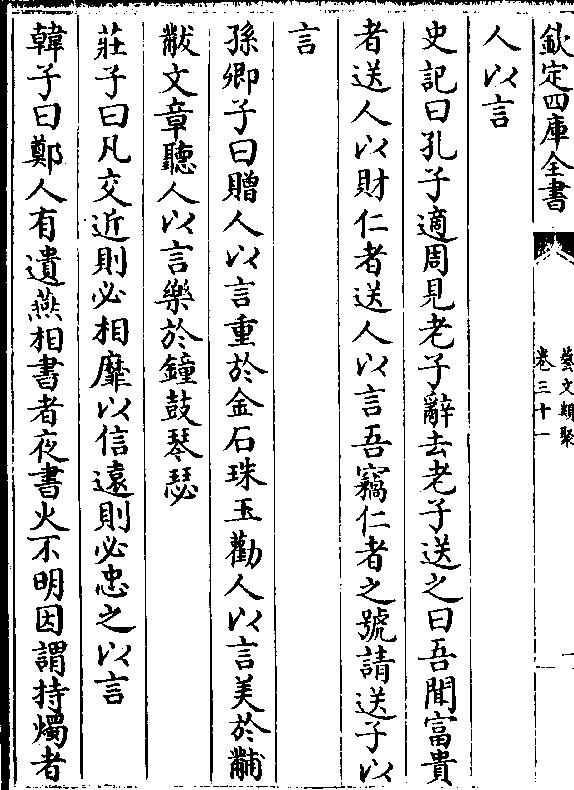 欽定四庫全書
藝文類聚
卷三十一
一
人以言
史記曰孔子適周見老子辭去老子送之曰吾聞富貴
者送人以財仁者送人以言吾竊仁者之號請送子以
言
孫卿子曰贈人以言重於金石珠玉勸人以言美於黼
黻文章聽人以言樂於鐘鼓琴瑟
莊子曰凡交近則必相靡以信遠則必忠之以言
韓子曰鄭人有遺燕相書者夜書火不明因謂持燭者